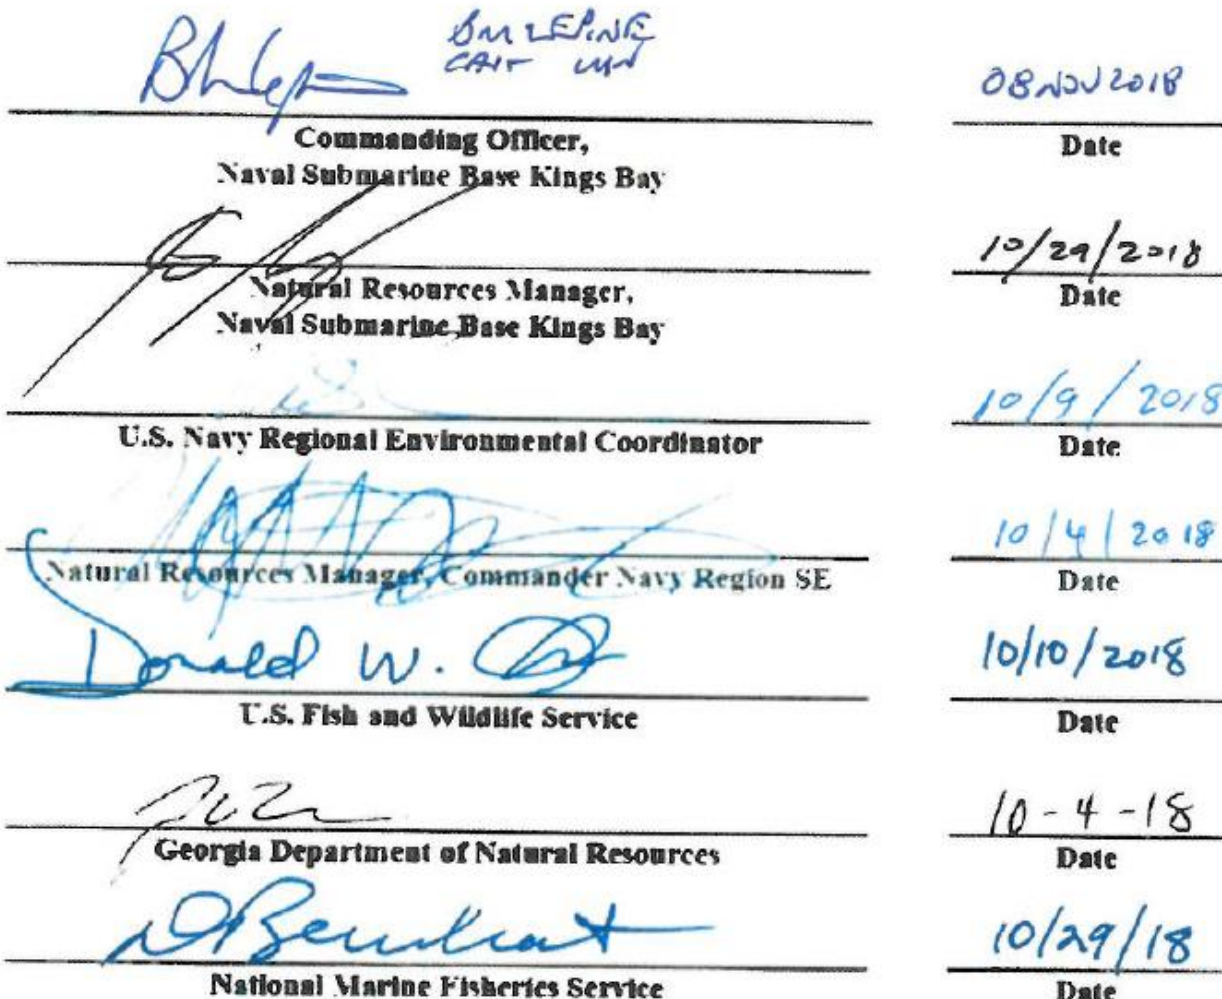 BM LEPINE
CAPT USN 08 NOV 2018
Commanding Officer, Date
Naval Submarine Base Kings Bay
10/29/2018
Natural Resources Manager, Date
Naval Submarine Base Kings Bay
10/9/2018
U.S. Navy Regional Environmental Coordinator Date
10/4/2018
Natural Resources Manager, Commander Navy Region SE Date
Donald W. 10/10/2018
U.S. Fish and Wildlife Service Date
10-4-18
Georgia Department of Natural Resources Date
10/29/18
National Marine Fisheries Service Date